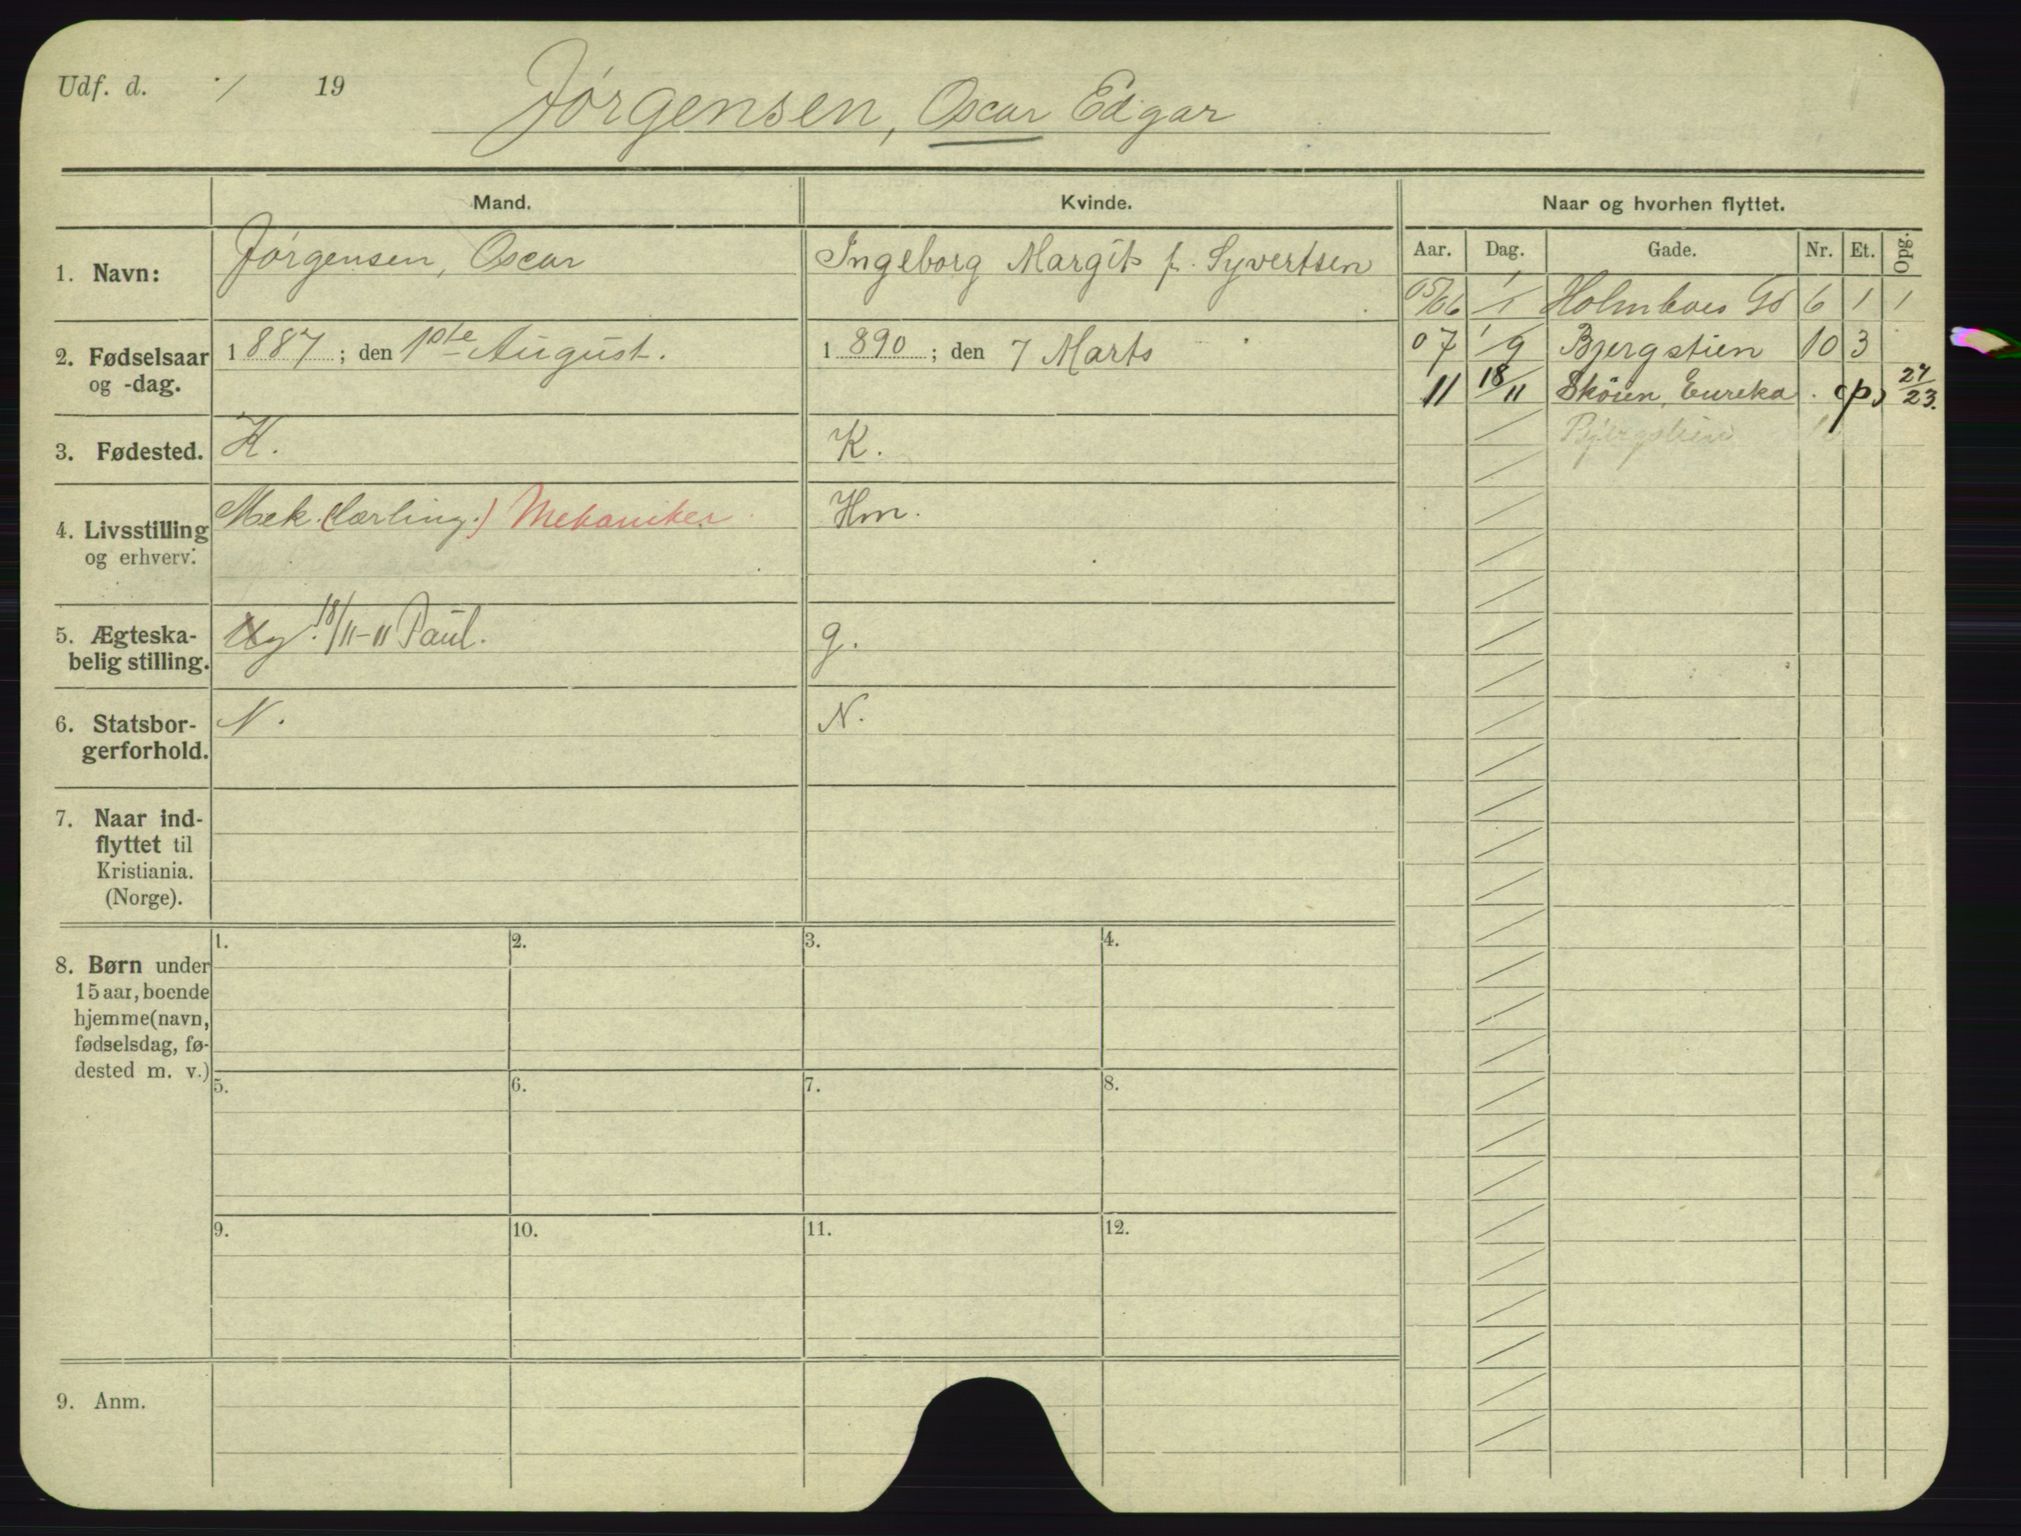 Udf. d. / 19
Jørgensen, Oscar Edgar
Mand.
Kvinde.
Naar og hvorhen flyttet.
Aar. Dag. Gade. Nr. Et. Opg.
1. Navn:
Jørgensen, Oscar
Ingeborg Margit f. Syvertsen
05/06 1/1 Holmboes Gd 6 1 1
07 1/9 Bjergstien 10 3
11 18/11 Skøien, Eureka (p) 27/23.
Bjergstien
2. Fødselsaar
og -dag.
1887; den 1ste August.
1890; den 7 Marts
3. Fødested.
K.
K.
4. Livsstilling
og erhverv:
Mek. (Lærling.) Mekaniker.
Hm.
5. Ægteska-
belig stilling.
Ug. 18/11-11 Paul.
g.
6. Statsbor-
gerforhold.
N.
N.
7. Naar ind-
flyttet til
Kristiania.
(Norge).
8. Børn under
15 aar, boende
hjemme (navn,
fødselsdag, fø-
dested m. v.)
1. 2. 3. 4.
5. 6. 7. 8.
9. 10. 11. 12.
9. Anm.